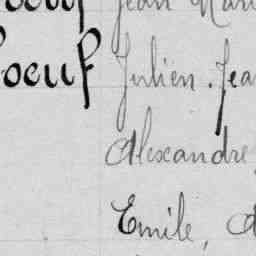 oeuf Jean Mari
oeuf Julien. Jea
Alexandre
Emile,